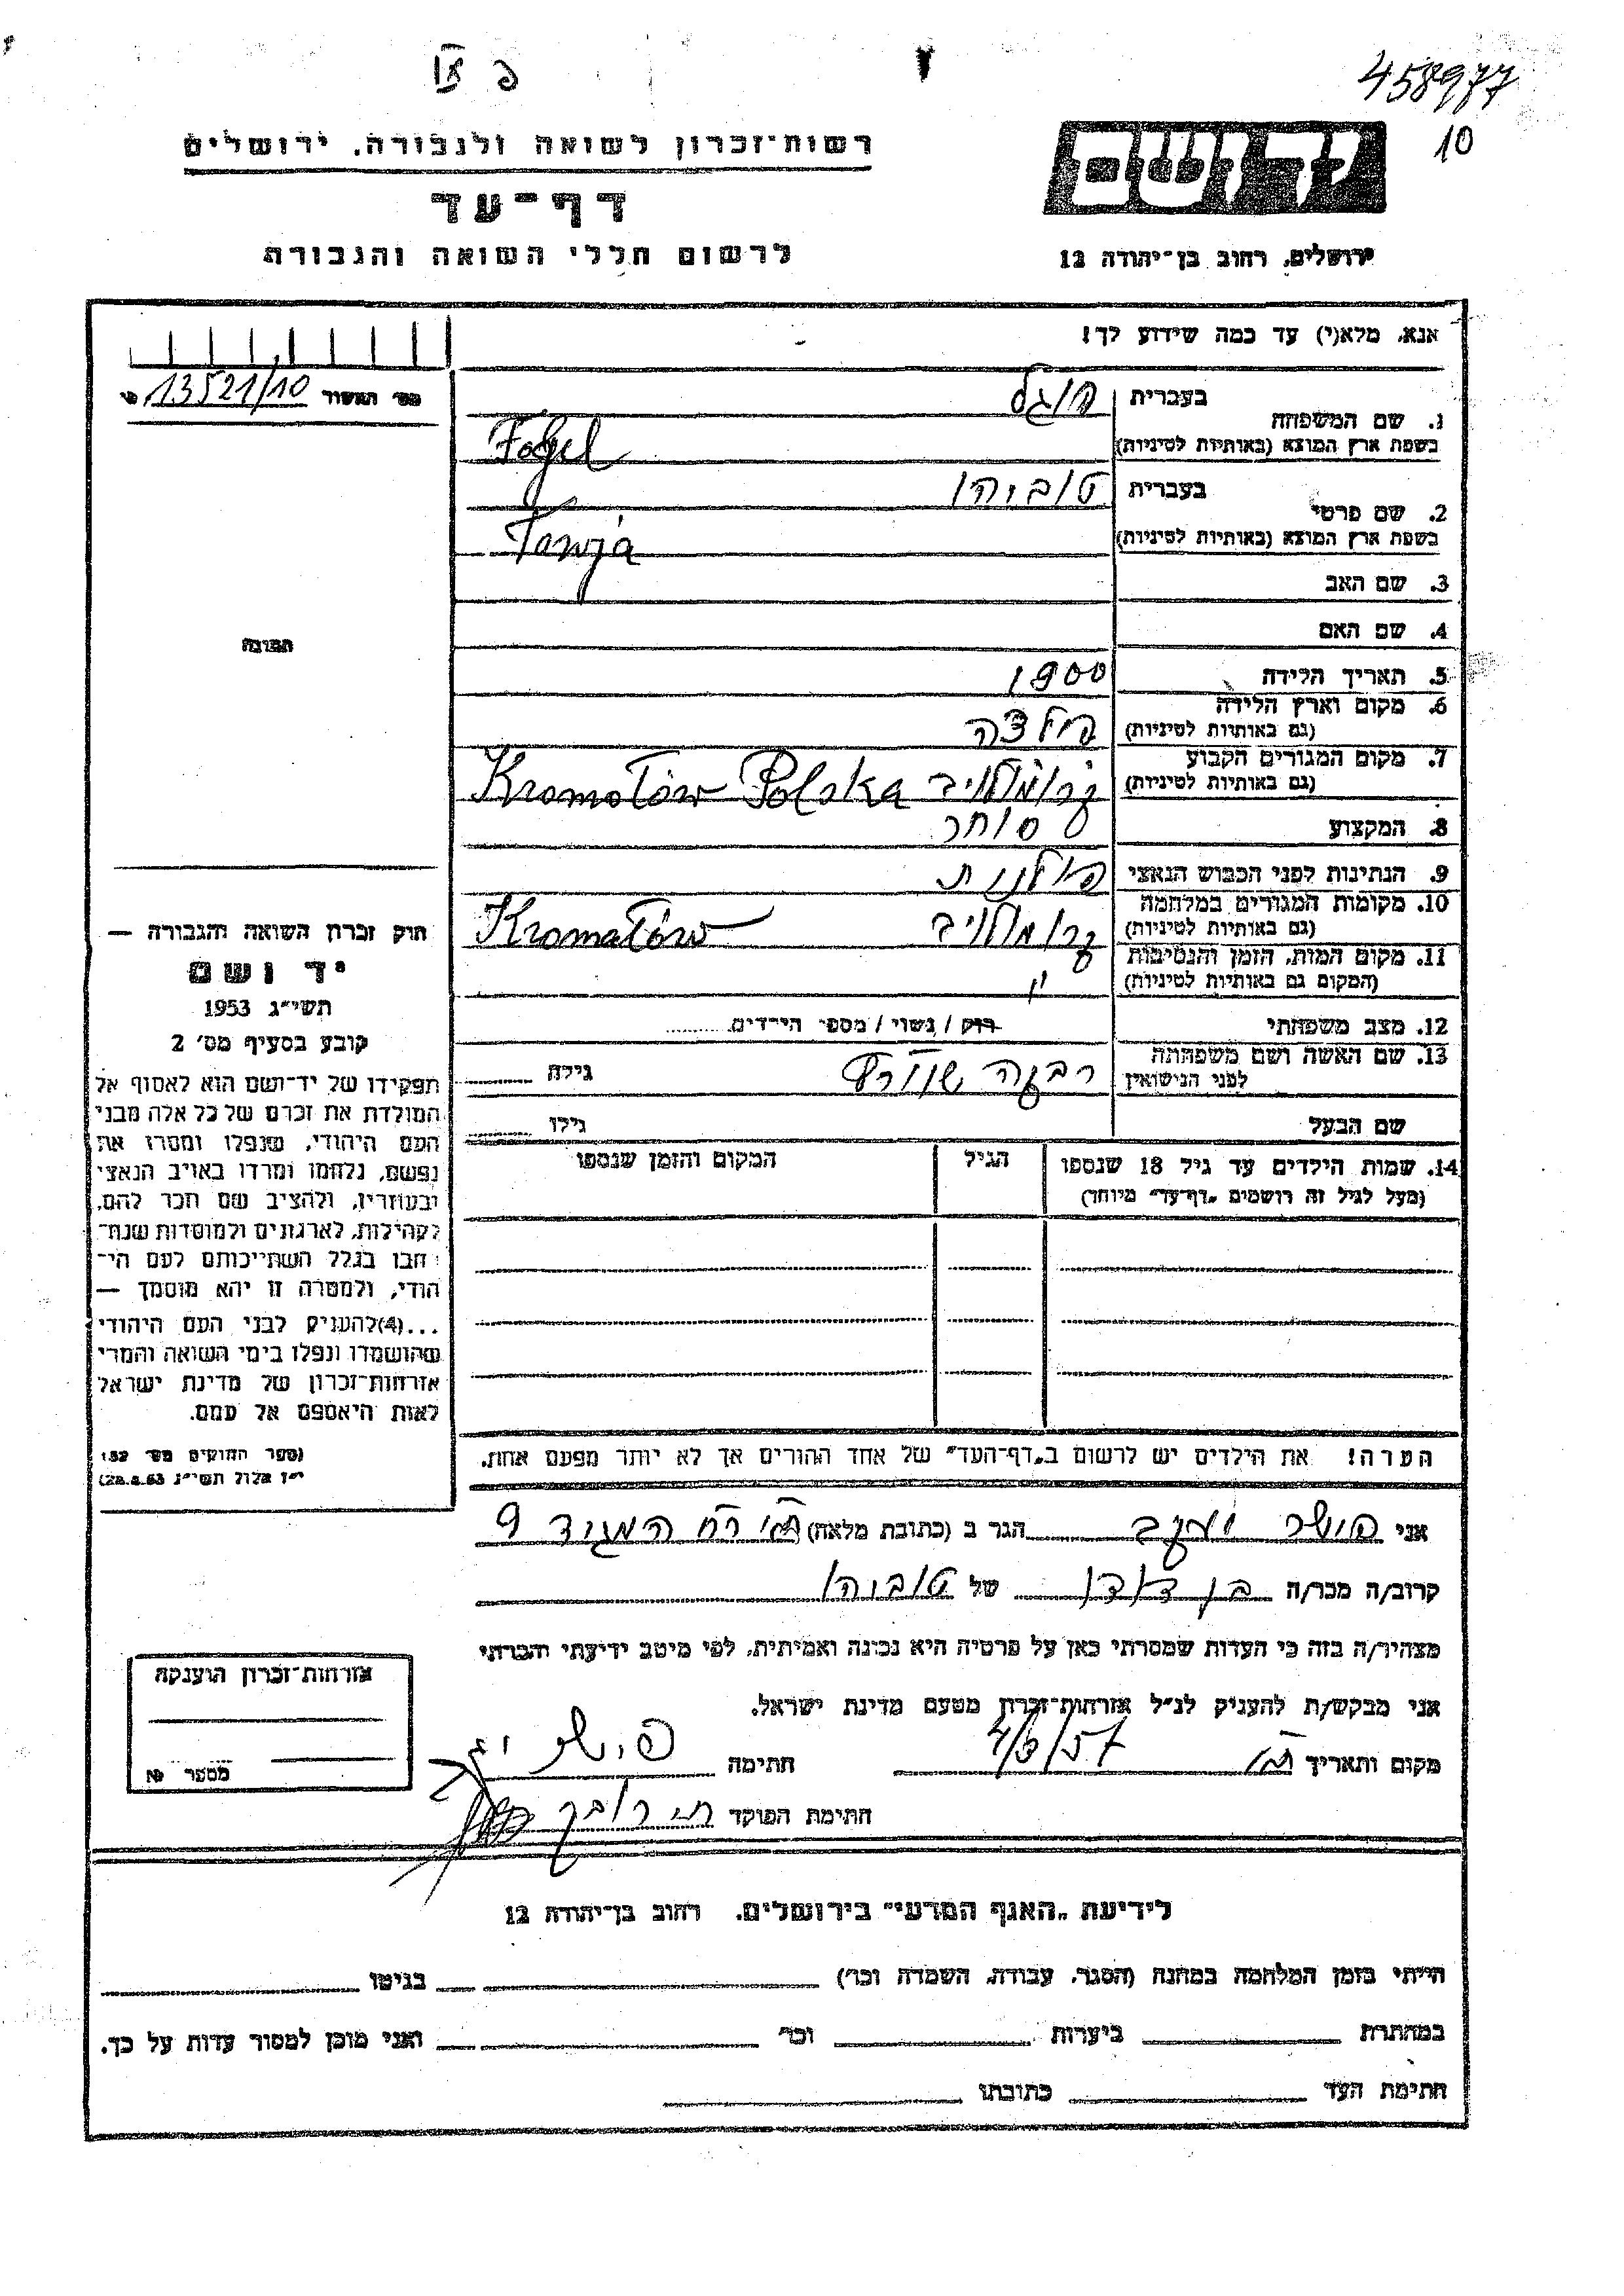 458977
10
רשות־זכרון לשואה ולגבורה, ירושלים
דף־עד
לרשום חללי השואה והגבורה
יד ושם
ירושלים, רחוב בן־יהודה 12
אנא, מלא(י) עד כמה שידוע לך!
מס׳ האשור 13521/10
1. שם המשפחה
בעברית פוגל
בשפת ארץ המוצא (באותיות לטיניות) Fogel
2. שם פרטי
בעברית טוביהו
בשפת ארץ המוצא (באותיות לטיניות)
3. שם האב
4. שם האם
5. תאריך הלידה 1900
6. מקום וארץ הלידה
(גם באותיות לטיניות)
7. מקום המגורים הקבוע
(גם באותיות לטיניות) Kromołów Polska
8. המקצוע סוחר
9. הנתינות לפני הכבוש הנאצי פולנית
10. מקומות המגורים במלחמה
(גם באותיות לטיניות) Kromołów
11. מקום המות, הזמן והנסיבות
(המקום גם באותיות לטיניות)
12. מצב משפחתי רוק / נשוי / מספר הילדים
13. שם האשה ושם משפחתה
לפני הנישואין רבקה גילה
שם הבעל גילו
14. שמות הילדים עד גיל 18 שנספו הגיל המקום והזמן שנספו
(מעל לגיל זה רושמים „דף־עד״ מיוחד)
הערה! את הילדים יש לרשום ב„דף־העד״ של אחד ההורים אך לא יותר מפעם אחת.
התמונה
חוק זכרון השואה והגבורה —
יד ושם
תשי״ג 1953
קובע בסעיף מס׳ 2
תפקידו של יד־ושם הוא לאסוף אל
המולדת את זכרם של כל אלה מבני
העם היהודי, שנפלו ומסרו את
נפשם, נלחמו ומרדו באויב הנאצי
ובעוזריו, ולהציב שם וזכר להם,
לקהילות, לארגונים ולמוסדות שנח־
רבו בגלל השתייכותם לעם הי־
הודי, ולמטרה זו יהא מוסמך —
...(4) להעניק לבני העם היהודי
שהושמדו ונפלו בימי השואה והמרי
אזרחות־זכרון של מדינת ישראל
לאות היאספם אל עמם.
(ספר החוקים מס׳ 132
י״ז אלול תשי״ג 28.8.53)
אני יעקב הגר ב (כתובת מלאה) המגיד 9
קרוב/ה מכר/ה בן דודו של טוביהו
מצהיר/ה בזה כי העדות שמסרתי כאן על פרטיה היא נכונה ואמיתית, לפי מיטב ידיעתי והכרתי
אני מבקש/ת להעניק לנ״ל אזרחות־זכרון מטעם מדינת ישראל.
מקום ותאריך חתימה
חתימת הפוקד
אזרחות־זכרון הוענקה
מספר №
לידיעת „האגף המדעי״ בירושלים, רחוב בן־יהודה 12
הייתי בזמן המלחמה במחנה (הסגר, עבודה, השמדה וכו׳) בגיטו
במחתרת ביערות וכו׳ ואני מוכן למסור עדות על כך.
חתימת העד כתובתו